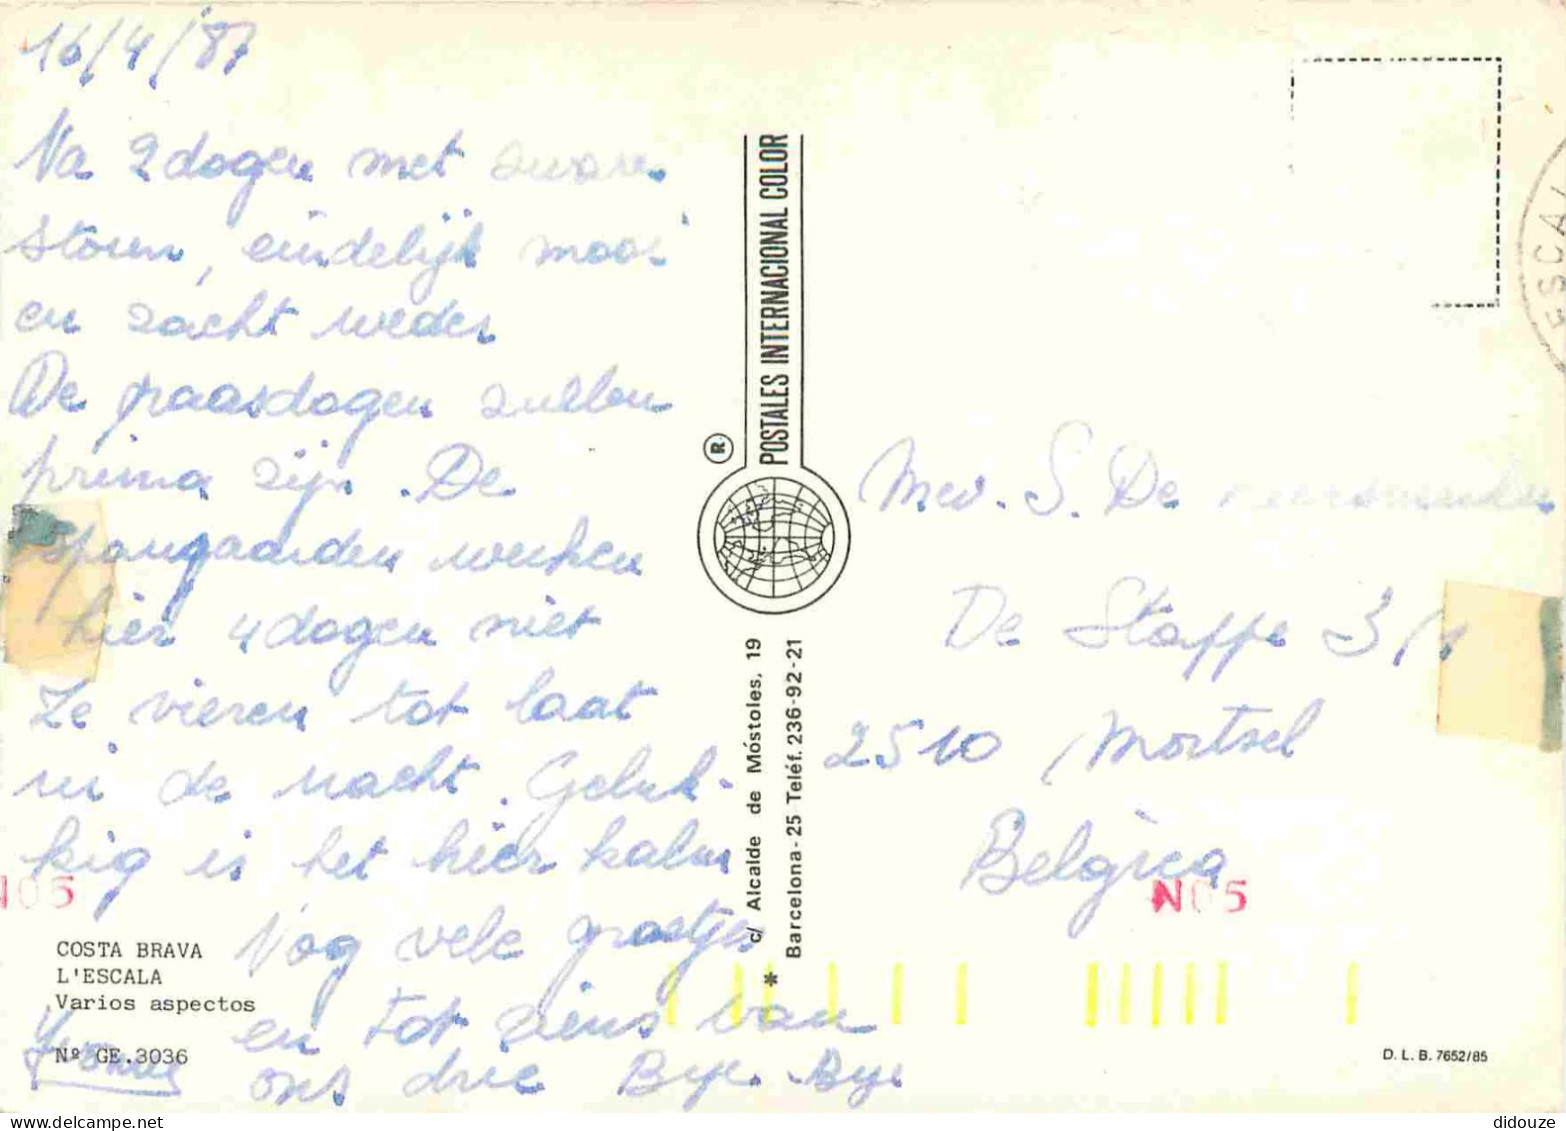 16/4/87
Na 2 dagen met zware
storm, eindelijk mooi
en zacht weder
De paasdagen zullen
prima zijn. De
spangaarden werken
hier 4 dagen niet
Ze vieren tot laat
in de nacht. Geluk-
kig is het hier kalm
Nog vele groetjes
en tot ziens van
ons drie Bye-Bye
Yvonne
COSTA BRAVA
L'ESCALA
Varios aspectos
Nº GE.3036
N05
POSTALES INTERNACIONAL COLOR
R
* c/ Alcalde de Móstoles, 19
Barcelona-25 Teléf. 236-92-21
ESCAL
Mev. S. De
De Staffe 3/1
2510 Mortsel
Belgica
N05
D. L. B. 7652/85
didouze